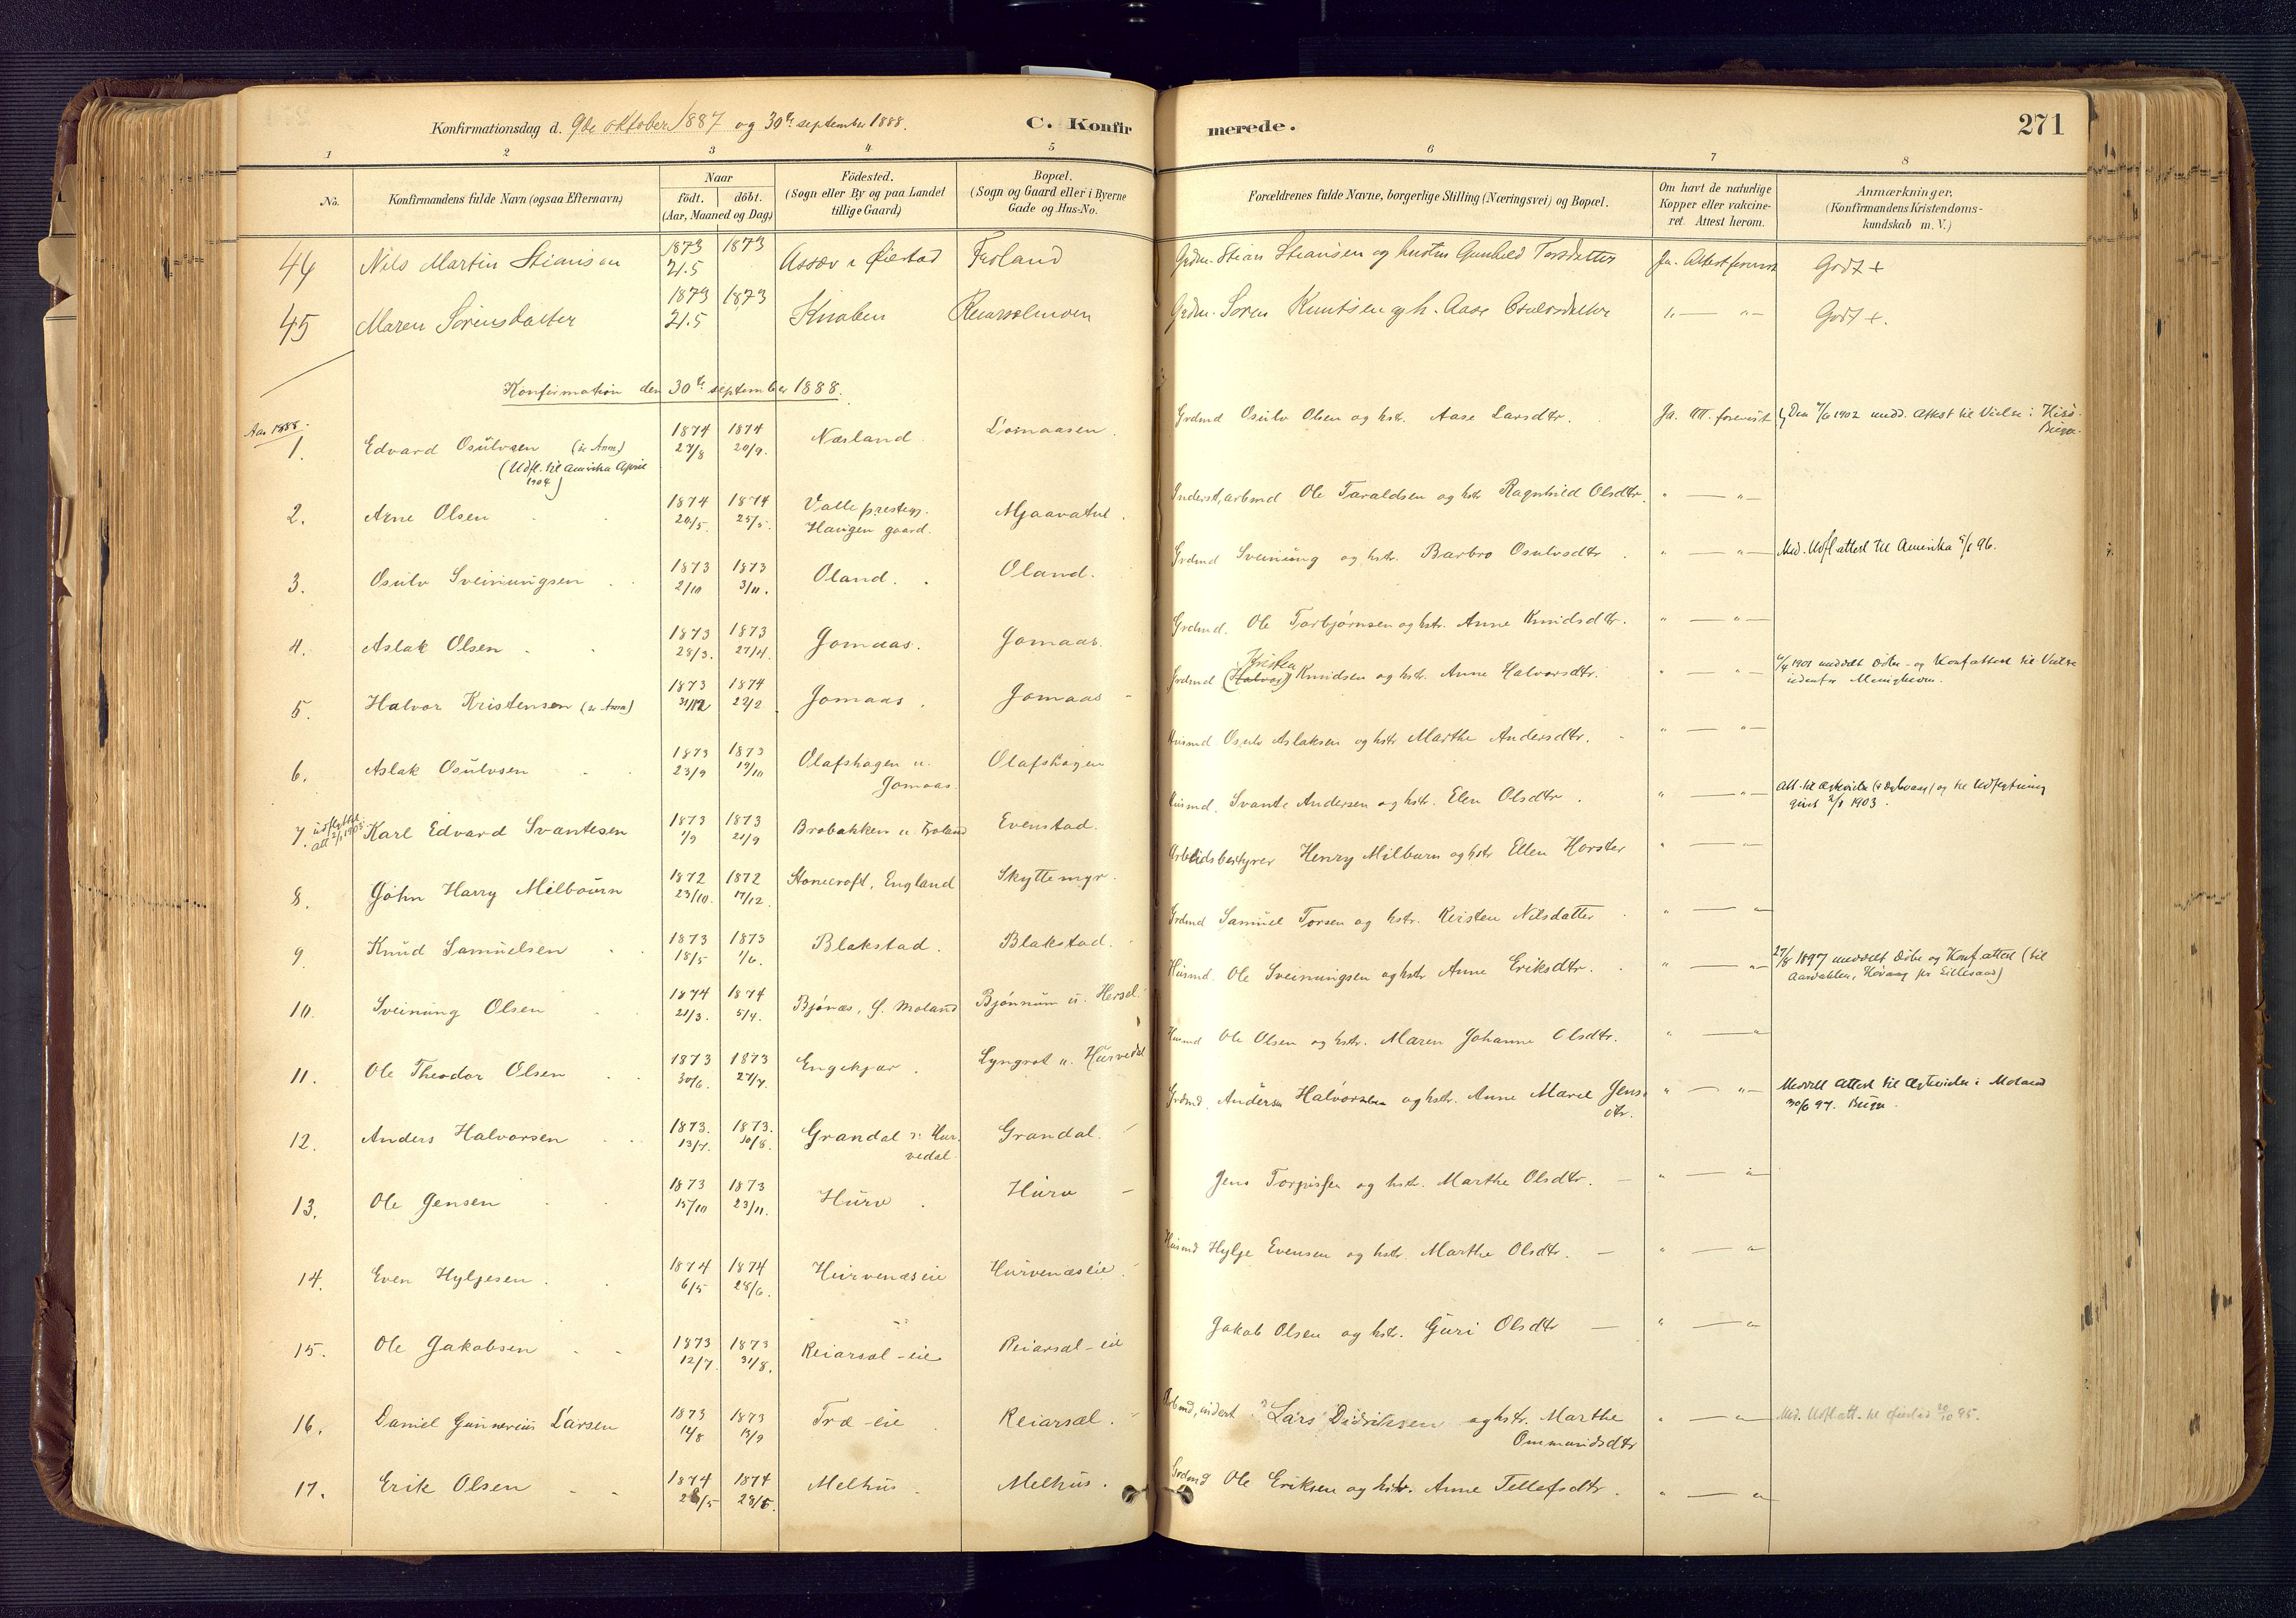 Konfirmationsdag d. 9de oktober 1887 og 30te september 1888. C. Konfirmerede. 271
1 2 3 4 5 6 7 8
No. Konfirmandens fulde Navn (ogsaa Efternavn) Naar født. døbt. (Aar, Maaned og Dag) Fødested. (Sogn eller By og paa Landet tillige Gaard) Bopæl. (Sogn og Gaard eller i Byerne Gade og Hus-No. Forældrenes fulde Navne, borgerlige Stilling (Næringsvei) og Bopæl. Om havt de naturlige Kopper eller vakcineret. Attest herom. Anmærkninger. (Konfirmandens Kristendomskundskab m. V.)
44 Nils Martin Stiansen 1873 21.5 1873 Assev i Øiestad Froland Grdm. Stian Stiansen og hustru Gunhild Torsdatter Ja. Attest forevist Godt +
45 Maren Sørensdatter 1873 21.5 1873 Knaben Reiarsolmoen Grdm. Søren Knutsen og h. Aase Osulvsdatter " — " — Godt +.
Konfirmation den 30te september 1888.
Aar 1888.
1. Edvard Osulvsen (se Anm) 1874 27/8 1874 20/9. Næsland. Lomaasen. Grdmd Osulv Olsen og hstr. Aase Larsdtr. Ja. Att. forevist Den 7/6 1902 medd. Attest til Vielse i Hisø. Buga.
(Udfl. til Amerika April 1904)
2. Arne Olsen 1874 20/5. 1874 25/5. Valle prestegj. Haugen gaard. Mjaavatn. Inderst, arbmd Ole Taraldsen og hstr Ragnhild Olsdtr. " — " —
3. Osulv Sveinungsen 1873 2/10 1873 3/11. Oland. Oland. Grdmd Sveinung og hstr. Barbro Osulvsdtr. " — " — Med. Udfl attest til Amerika 9/1 96.
4. Aslak Olsen 1873 28/3. 1873 27/4. Jomaas. Jomaas. Grdmd. Ole Torbjørnsen og hstr. Anne Knudsdtr. " — " —
5. Halvor Kristensen (se Anm) 1873 31/12 1874 22/2 Jomaas. Jomaas Grdmd (Halvor) Kristen Knudsen og hstr. Anne Halvorsdtr. " — " — 4/4 1901 meddelt Døbe- og Konfattest til Vielse udenfor Menigheden.
6. Aslak Osulvsen 1873 23/9 1873 19/10 Olafshagen u. Jomaas. Olafshagen Husmd Osulv Aslaksen og hstr Marthe Andersdtr. " — " —
7. udflytte. att 2/1 1903. Karl Edvard Svantesen 1873 1/9 1873 21/9 Brobakken u. Froland Evenstad. Husmd. Svante Andersen og hstr. Elen Olsdtr. " — " — Att. til Ægtevielse og til Udflytning givet 2/1 1903.
8. John Harry Milbourn 1872 23/10. 1872 17/12. Stonecroft, England Skyttemyr. Arbeidsbestyrer Henry Milburn og hstr Ellen Horster " — " —
9. Knud Samuelsen 1873 18/5 1873 1/6. Blakstad. Blakstad. Grdmd Samuel Torsen og hstr. Kirsten Nilsdatter " — "
10. Sveinung Olsen 1874 21/3. 1874 5/4. Bjønæs, Ø. Moland Bjønnum u. Hersel. Husmd. Ole Sveinungsen og hstr Anne Eriksdtr. " — " — 27/8 1897 meddelt Døbe og Konfattest (til Aardahlen, Høvaag pr Lillesand)
11. Ole Theodor Olsen 1873 30/6. 1873 27/7. Engekjær. Lyngrot u. Hurvedal Husmd Ole Olsen og hstr. Maren Johanne Olsdtr. " — "
12. Anders Halvorsen 1873. 13/7. 1873. 10/8. Grandal u. Hurvedal. Grandal. Grdmd. Anders Halvorsen og hstr. Anne Marie Jensdtr. " — " — Meddelt Attest til Ægtevielse i Moland 30/6 97. Buga.
13. Ole Jensen 1873 15/10 1873 23/11. Hurv. Hurv Jens Torgissen og hstr. Marthe Olsdtr. " — "
14. Even Hyljesen. 1874 6/5 1874 28/6. Hurvenæseie Hurvenæseie. Husmd Hylje Evensen og hstr. Marthe Olsdtr. " — "
15. Ole Jakobsen 1873 12/7. 1873 31/8. Reiarsal-eie Reiarsal-eie Jakob Olsen og hstr. Guri Olsdtr " — "
16. Daniel Gunnerius Larsen 1873 14/8 1873 14/9 Træ-eie Reiarsal. Arbmd, inderst. Lars Didriksen og hstr. Marthe Ommundsdtr " — " Med. Udfl att. til Øiestad 20/10 95.
17. Erik Olsen 1874 28/5 1874 28/6. Melhus. Melhus. Grdmd Ole Eriksen og hstr. Anne Tellefsdtr. " — "